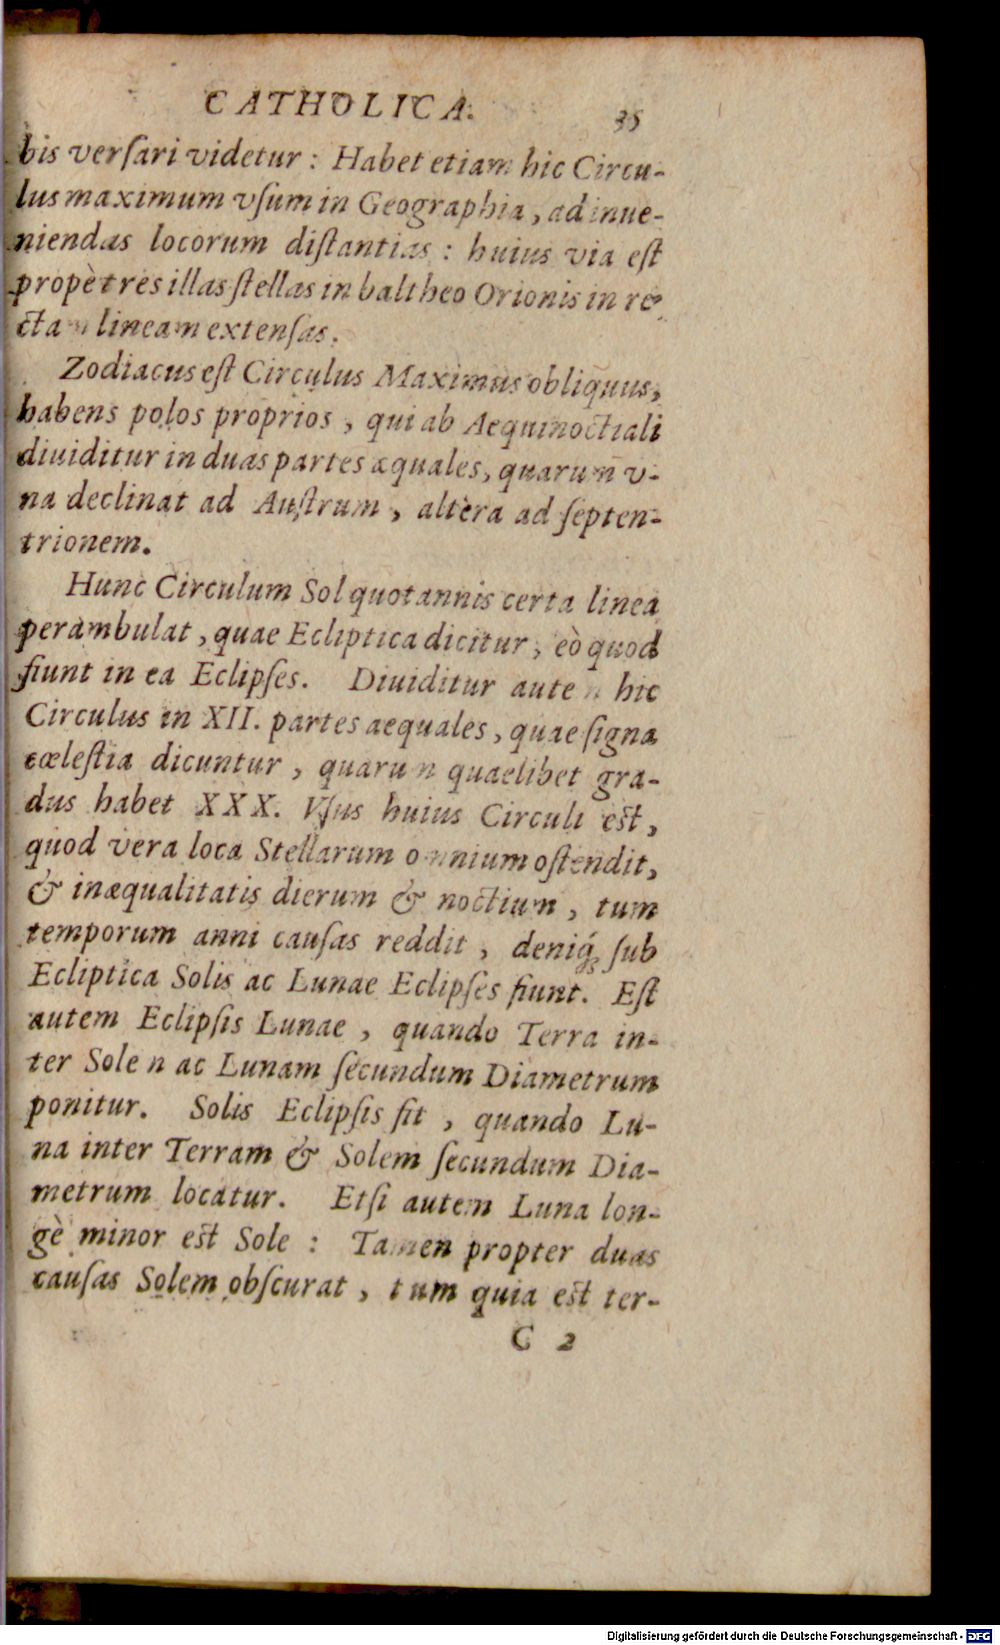 CATHOLICA. 35
bis verſari videtur : Habet etiam hic Circu-
lus maximum vſum in Geographia, ad inue-
niendas locorum diſtantias : huius via eſt
propè tres illas ſtellas in baltheo Orionis in re-
ctam lineam extenſas.
Zodiacus eſt Circulus Maximus obliquus,
habens polos proprios, qui ab Aequinoctiali
diuiditur in duas partes æquales, quarum v-
na declinat ad Auſtrum, altera ad ſepten-
trionem.
Hunc Circulum Sol quotannis certa linea
perambulat, quae Ecliptica dicitur, eò quod
fiunt in ea Eclipſes. Diuiditur autem hic
Circulus in XII. partes aequales, quae ſigna
cœleſtia dicuntur, quarum quaelibet gra-
dus habet XXX. Vſus huius Circuli eſt,
quod vera loca Stellarum omnium oſtendit,
& inæqualitatis dierum & noctium, tum
temporum anni cauſas reddit, deniq́ꝫ ſub
Ecliptica Solis ac Lunae Eclipſes fiunt. Eſt
autem Eclipſis Lunae, quando Terra in-
ter Solem ac Lunam ſecundum Diametrum
ponitur. Solis Eclipſis fit, quando Lu-
na inter Terram & Solem ſecundum Dia-
metrum locatur. Etſi autem Luna lon-
gè minor eſt Sole : Tamen propter duas
cauſas Solem obſcurat, tum quia eſt ter-
C 2
Digitalisierung gefördert durch die Deutsche Forschungsgemeinschaft - DFG